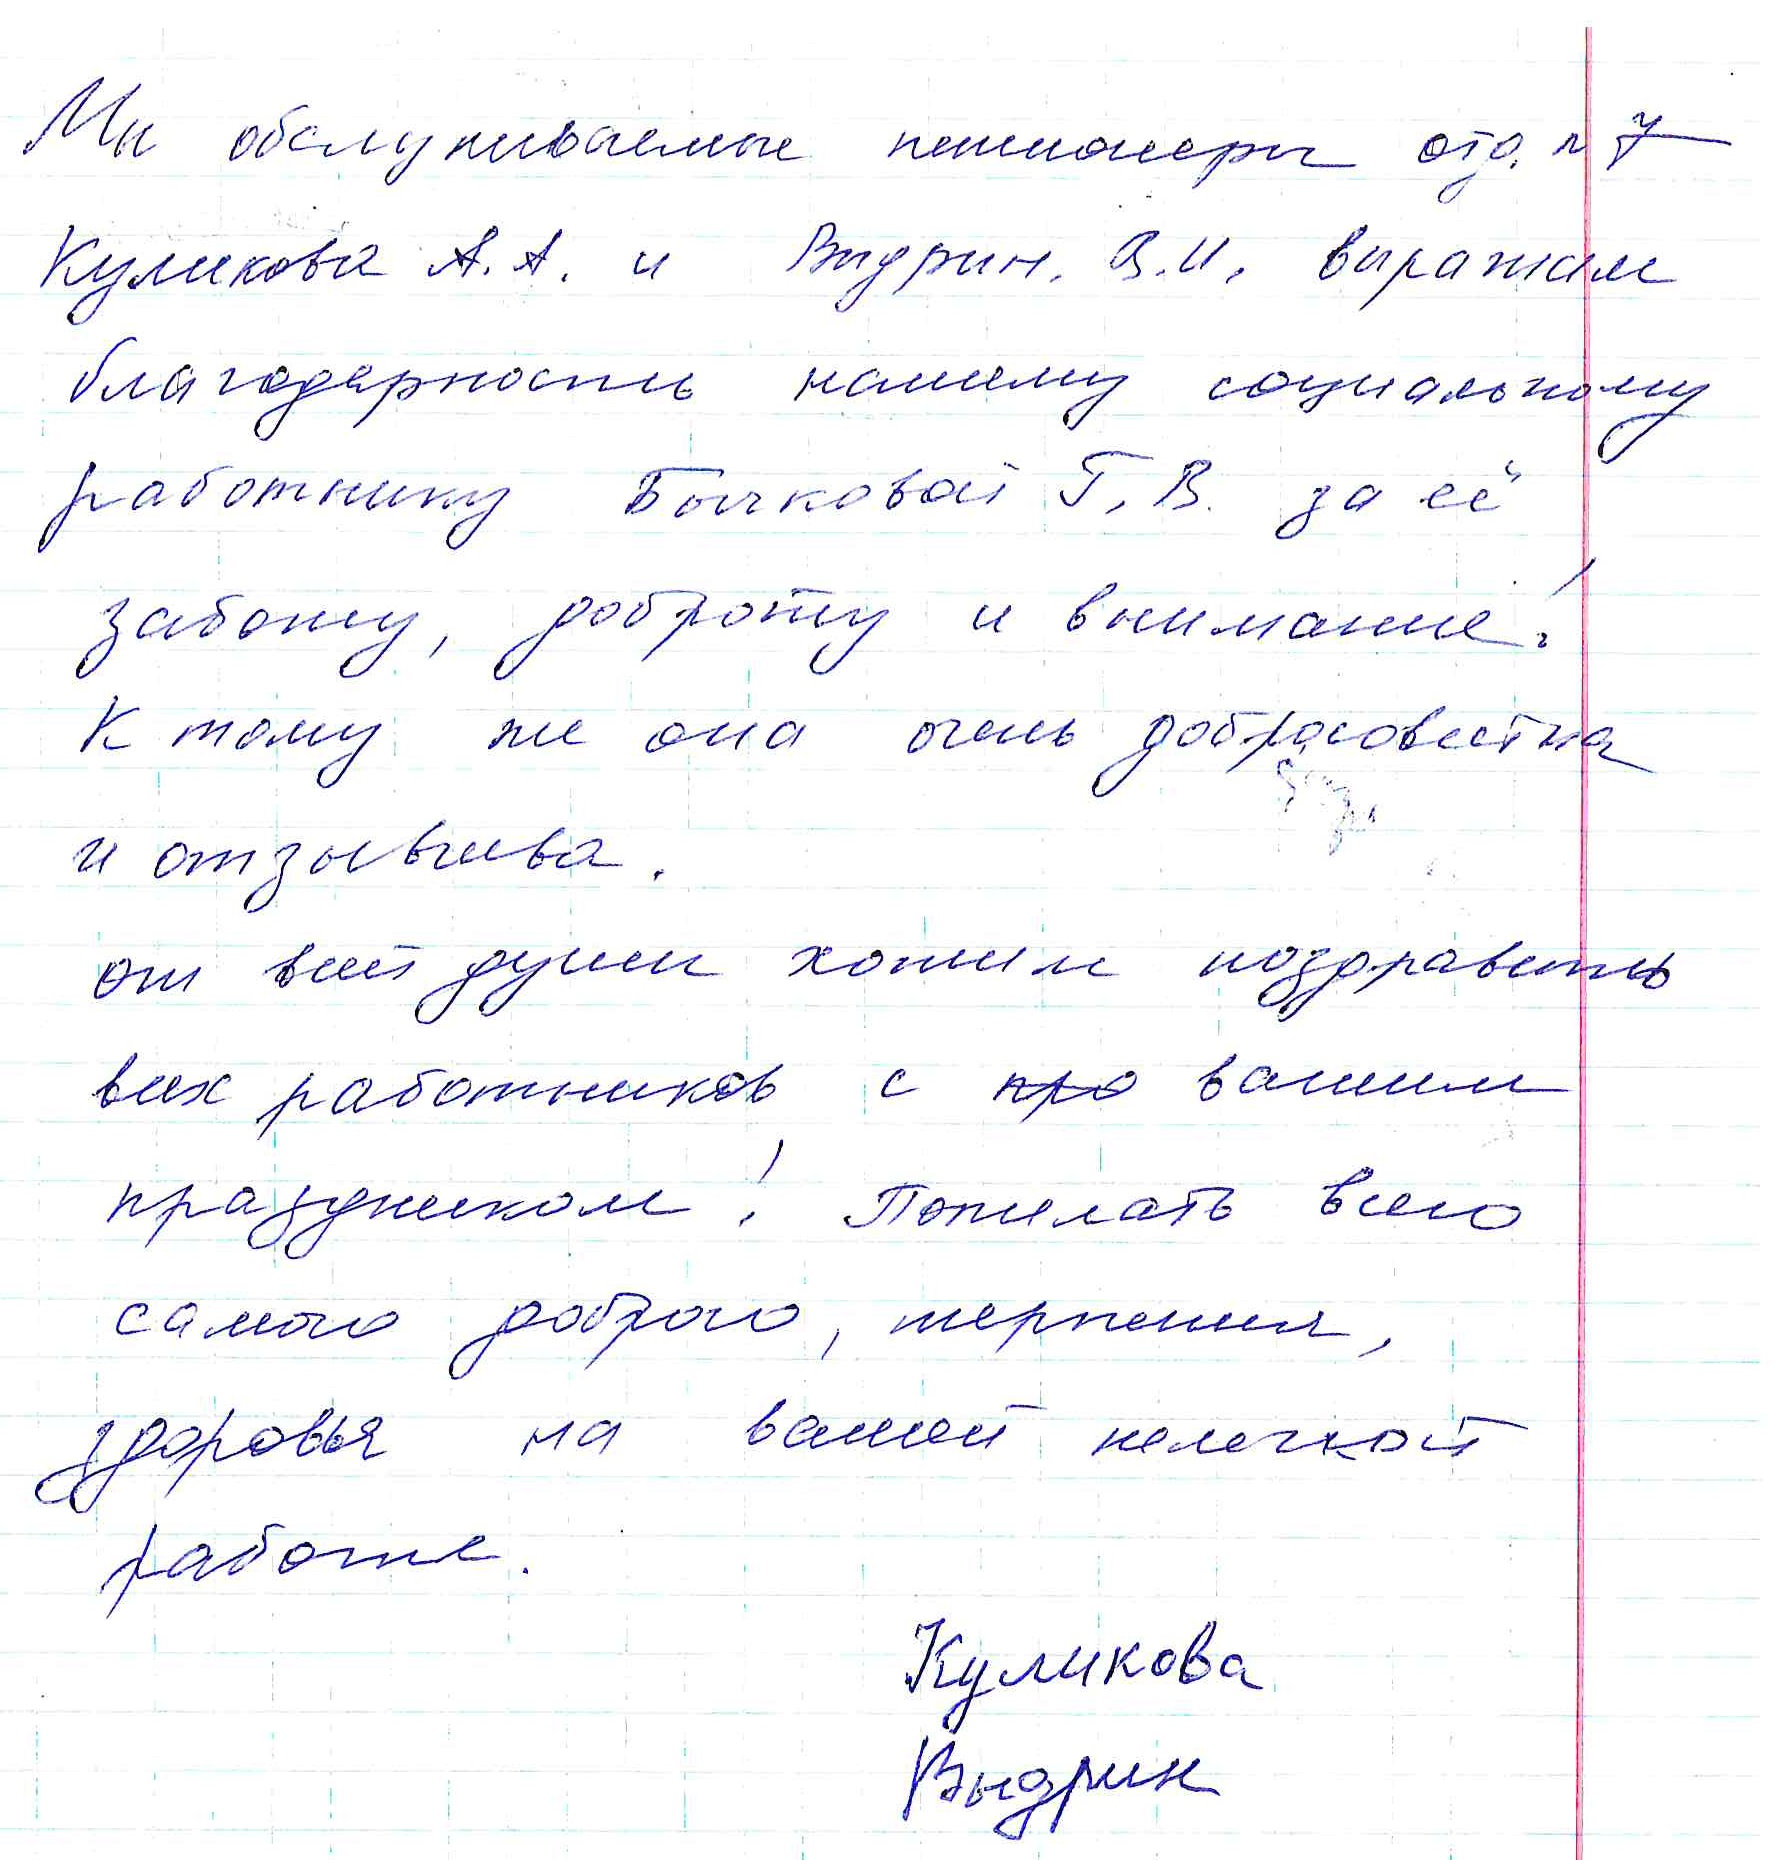 Мы обслуживаемые пенсионеры отд. n 7
Куликова А. А. и Выдрин. В. И. выражаем
благодарность нашему социальному
работнику Бычковой Г. В. за её
заботу, доброту и внимание!
К тому же она очень добросовестна
и отзывчива.
от всей души хотим поздравить
всех работников с про вашим
праздником! Пожелать всего
самого доброго, терпения,
здоровья на вашей нелегкой
работе.
Куликова
Выдрин